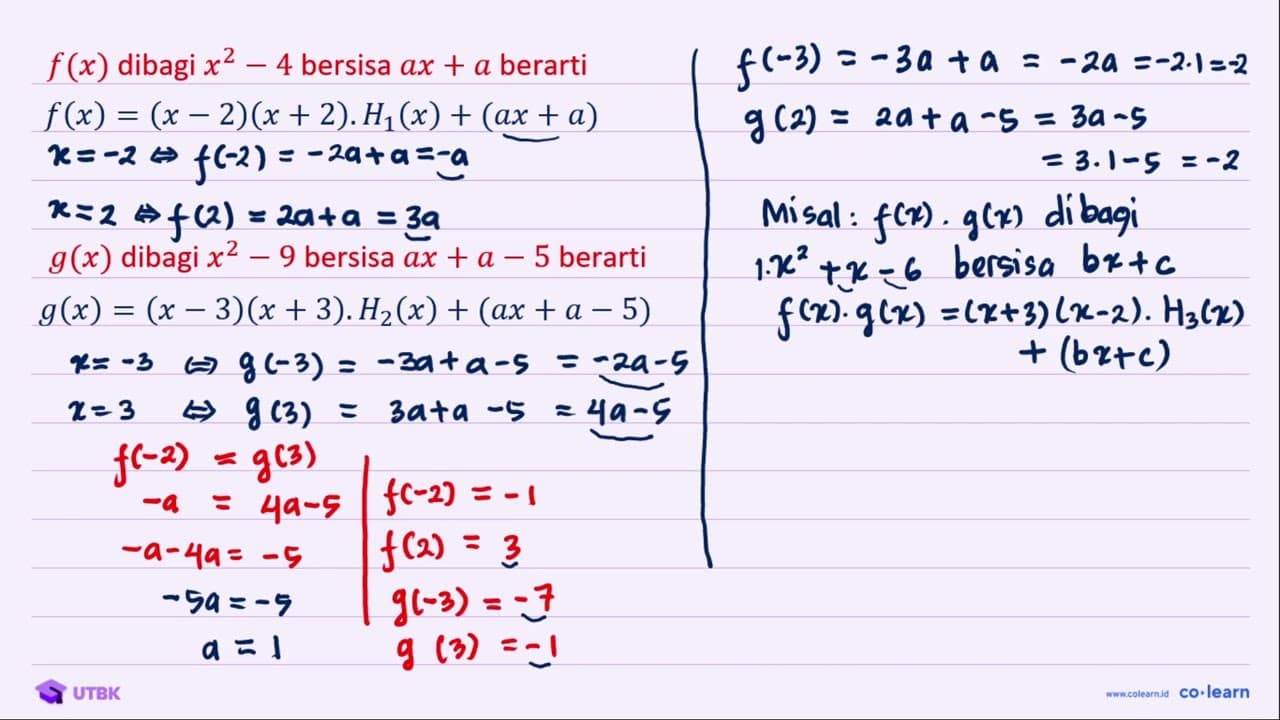 f(x) dibagi x² − 4 bersisa ax + a berarti
f(x) = (x − 2)(x + 2). H₁(x) + (ax + a)
x = -2 ⇔ f(-2) = -2a + a = -a
x = 2 ⇔ f(2) = 2a + a = 3a
g(x) dibagi x² − 9 bersisa ax + a − 5 berarti
g(x) = (x − 3)(x + 3). H₂(x) + (ax + a − 5)
x = -3 ⇔ g(-3) = -3a + a - 5 = -2a - 5
x = 3 ⇔ g(3) = 3a + a - 5 = 4a - 5
f(-2) = g(3)
-a = 4a - 5
-a - 4a = -5
-5a = -5
a = 1
f(-2) = -1
f(2) = 3
g(-3) = -7
g(3) = -1
f(-3) = -3a + a = -2a = -2·1 = -2
g(2) = 2a + a - 5 = 3a - 5
= 3·1 - 5 = -2
Misal : f(x) . g(x) dibagi
1.x² + x - 6 bersisa bx + c
f(x). g(x) = (x+3)(x-2). H₃(x)
+ (bx + c)
UTBK
www.colearn.id co·learn